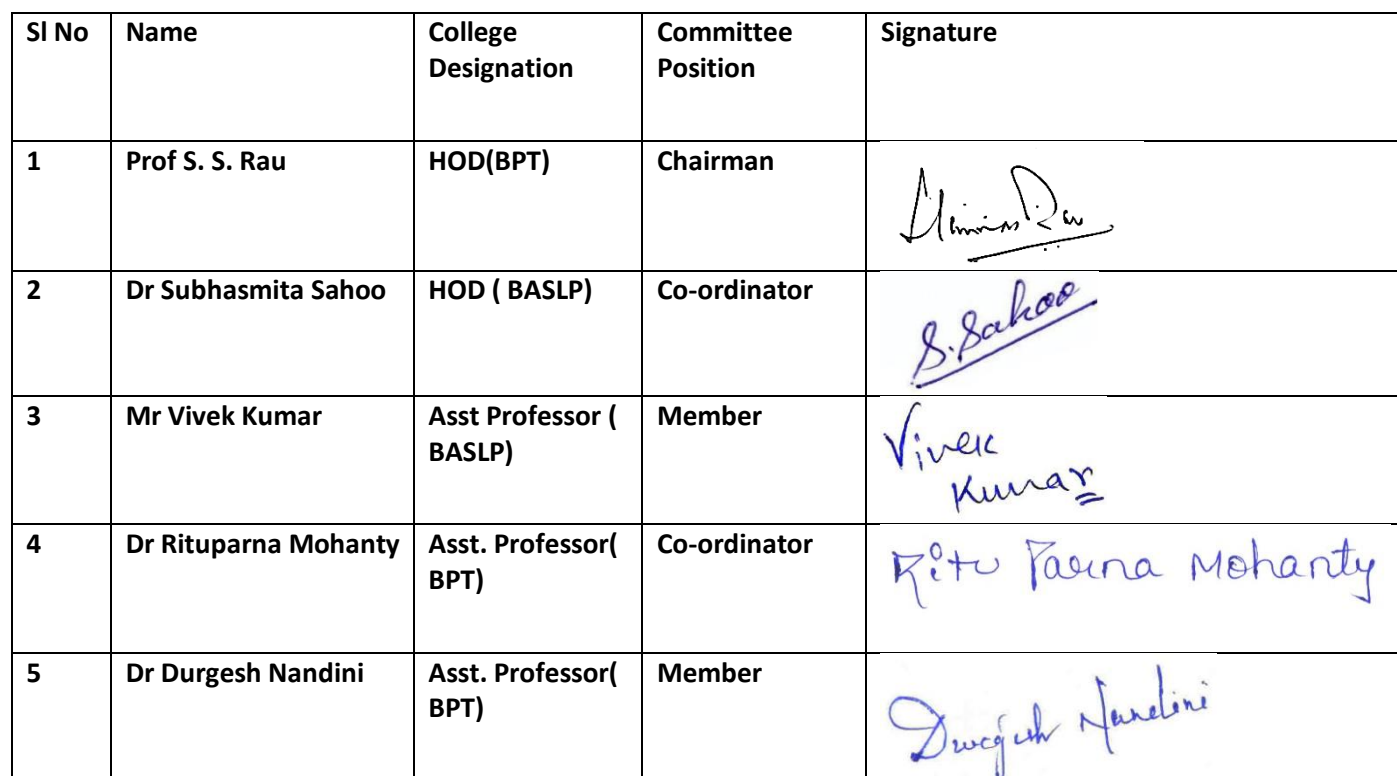 Sl No Name College Designation Committee Position Signature
1 Prof S. S. Rau HOD(BPT) Chairman
2 Dr Subhasmita Sahoo HOD ( BASLP) Co-ordinator S. Sahoo
3 Mr Vivek Kumar Asst Professor ( BASLP) Member Vivek Kumar
4 Dr Rituparna Mohanty Asst. Professor( BPT) Co-ordinator Ritu Parna Mohanty
5 Dr Durgesh Nandini Asst. Professor( BPT) Member Durgesh Nandini